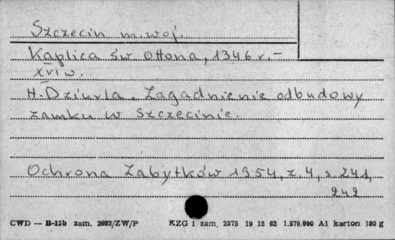 Szczecin m. woj.
Kaplica św Ottona, 1346 r. –
XVI w.
H. Dziurla. Zagadnienie odbudowy
zamku w Szczecinie.
Ochrona Zabytków 1954, z. 4, s. 241,
242
CWD — B-15b zam. 2602/ZW/P KZG 1 zam. 2375 19 12 62 1.570.000 A1 karton 180 g